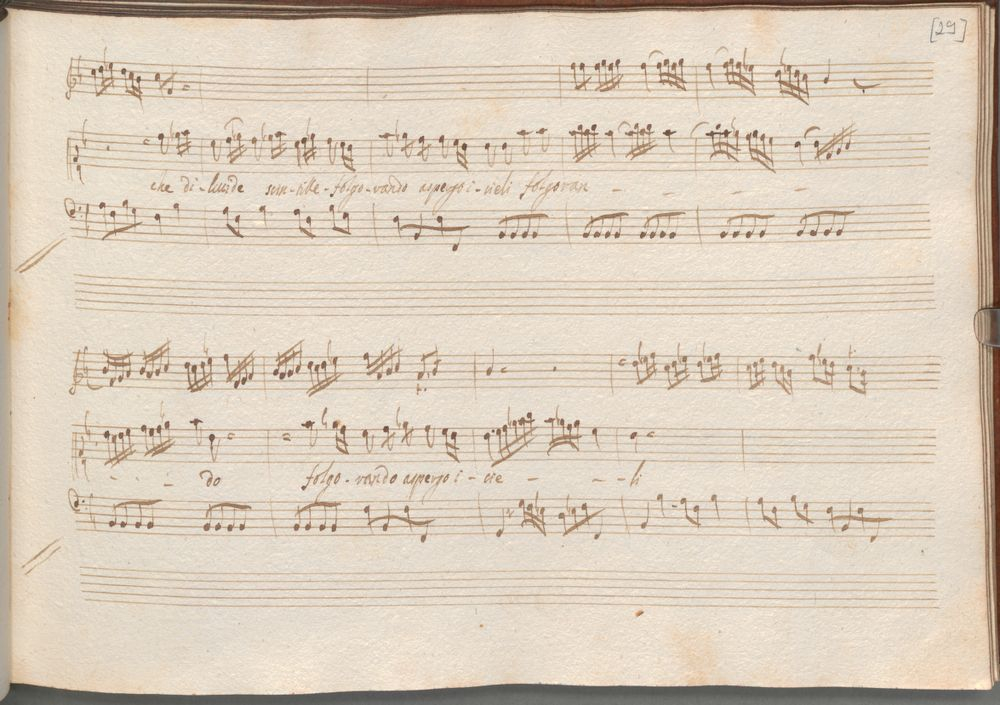 [29]
che di-lucide scin-tille-folgo-rando aspergo i-cieli folgoran - - - -
- - - do folgo-rando aspergo i-cie - - -li